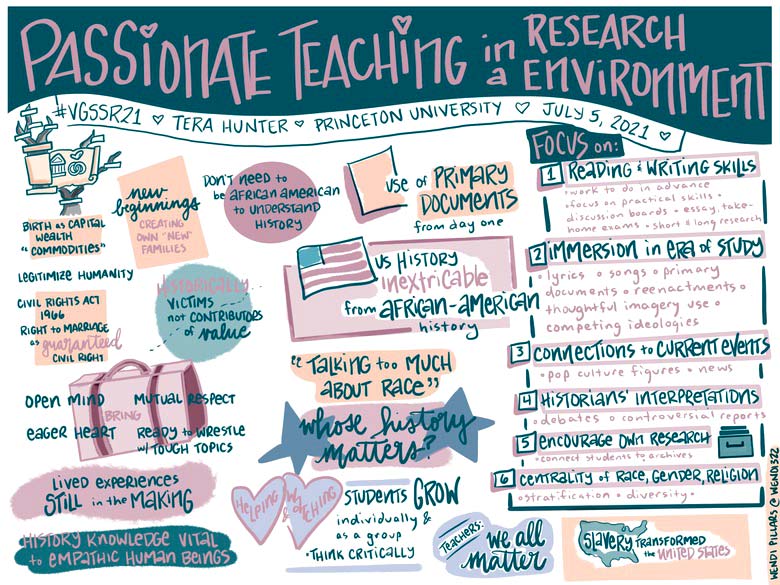 PASSIONATE TEACHING in a RESEARCH ENVIRONMENT
#VGSSR21 ♡ TERA HUNTER ♡ PRINCETON UNIVERSITY ♡ JULY 5, 2021 ♡
BIRTH as CAPITAL
WEALTH
"COMMODITIES"
new
beginnings
CREATING
OWN "NEW"
FAMILIES
DON'T NEED to
be AFRICAN AMERICAN
to UNDERSTAND
HISTORY
USE of PRIMARY
DOCUMENTS
from day one
LEGITIMIZE HUMANITY
CIVIL RIGHTS ACT
1966
RIGHT to MARRIAGE
as guaranteed
CIVIL RIGHT
HISTORICALLY
VICTIMS
not CONTRIBUTORS
of value
US HISTORY
inextricable
from AFRICAN-AMERICAN
history
OPEN MIND
MUTUAL RESPECT
BRING
EAGER HEART
READY to WRESTLE
w/ TOUGH TOPICS
"TALKING too MUCH
ABOUT RACE"
whose history
matters?
LIVED EXPERIENCES
STILL in the MAKING
HISTORY KNOWLEDGE VITAL
to EMPATHIC HUMAN BEINGS
HELPING
&
STUDENTS GROW
individually &
as a group
• THINK CRITICALLY
TEACHERS:
we all
matter
FOCUS on:
1 READING & WRITING SKILLS
• work to do in advance
• focus on practical skills •
discussion boards • essay, take-
home exams • short & long research
2 immersion in ERA of STUDY
• lyrics • songs • primary
documents • reenactments •
thoughtful imagery use •
competing ideologies
3 CONNECTIONS to CURRENT EVENTS
• pop culture figures • news
4 HISTORIANS' INTERPRETATIONS
• debates • controversial reports
5 ENCOURAGE OWN RESEARCH
• connect students to archives
6 CENTRALITY of RACE, GENDER, RELIGION
• stratification • diversity •
Slavery TRANSFORMED
the UNITED STATES
WENDI PILLARS @ WENDI322